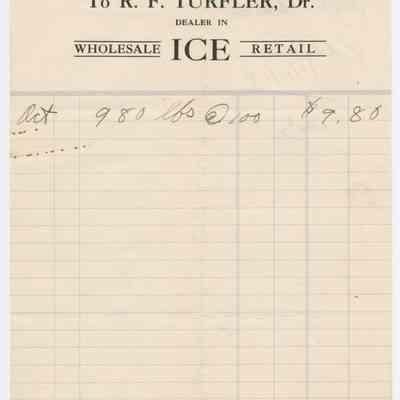 To R. F. TURFLER, Dr.
DEALER IN
WHOLESALE ICE RETAIL
Oct 980 lbs @ 100 $9.80